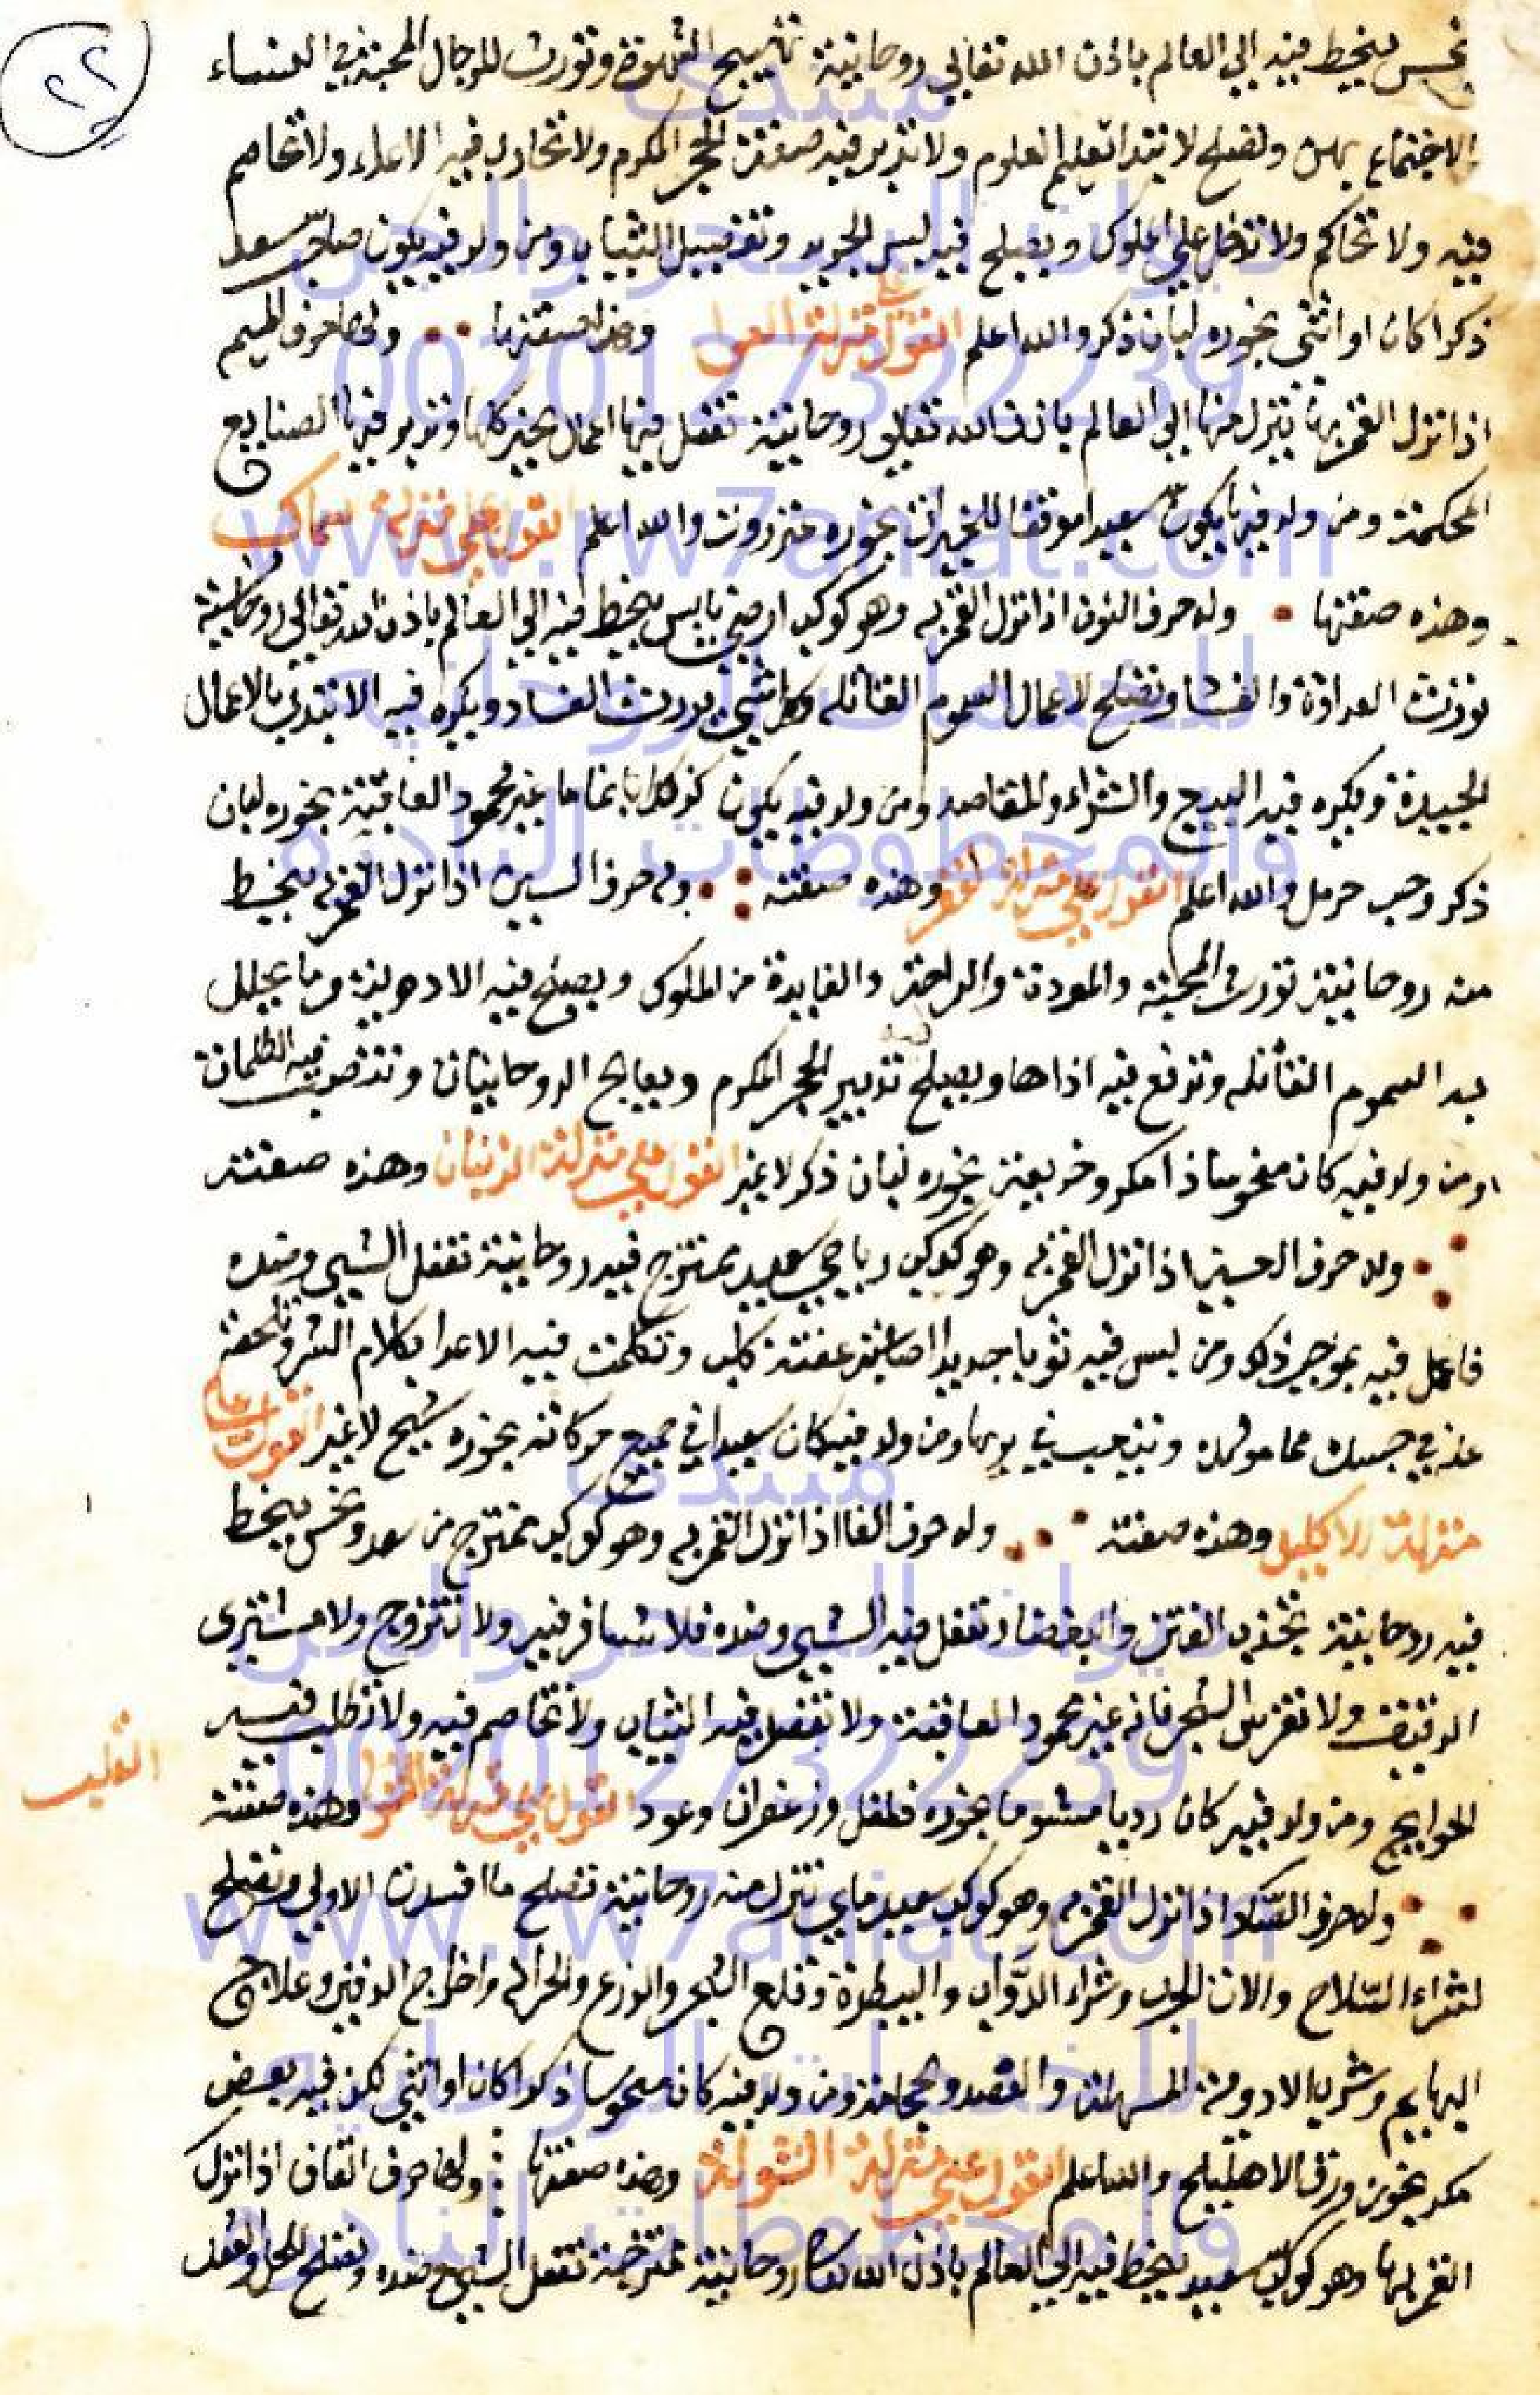 ٢٢
نحس ينحط فيه الي العالم باذن الله تعالي روحانية تهيج الشهوة وتورث للرجال المحبة في النساء
الاجتماع بهن وتصلح لابتدا تعليم العلوم ولا تدبر فيه صنعة الحجر المكرم ولا تحارب فيه الاعداء ولا تخاصم
فيه ولا تحاكم ولا تدخل علي الملوك ويصلح فيه لبس الجديد وتفصيل الثياب ومن ولد فيه يكون صاحب سعد
ذكرا كان او انثى بخوره لبان ذكر والله اعلم القول على منزلة العوا وهذا صفتها ولها حرف الميم
اذا نزل القمر بها تنزل منها الي العالم باذن الله تعالي روحانية تفعل فيها اعمال الخير كلها وتدبر فيها الصنايع
المحكمة ومن ولد فيها يكون سعيدا موفقا للخيرات بخوره عنزروت والله اعلم القول على منزلة السماك
وهذه صفتها وله حرف النون اذا نزل القمر به وهو كوكب ارضي يابس ينحط فيه الي العالم باذن الله تعالي روحانية
تورث العداوة والفساد وتصلح لاعمال السموم القاتله وكل شيء يورث الفساد ويكره فيه الابتدي بالاعمال
الجيدة ويكره فيه البيع والشراء والمقاصد ومن ولد فيه يكون نماما غير محمود العاقبة بخوره لبان
ذكر وحب حرمل والله اعلم القول على منزلة الغفر وهذه صفته وله حرف السين اذا نزل القمر به ينحط
منه روحانية تورث المحبة والمودة والراحة والفايدة من الملوك ويصلح فيه الادوية وما يحلل
به السموم القاتله وترفع فيه اذاها ويصلح فيه تدبير الحجر المكرم ويعالج الروحانيات فيه الظلمات
ومن ولد فيه كان منحوسا ذا مكر وخديعة بخوره لبان ذكر لا غير القول على منزلة الزبنان وهذه صفته
وله حرف العين اذا نزل القمر به وهو كوكب رياحي سعيد ممتزج فيه روحانية تفعل الشيي وضده
فاعمل فيه بموجب ذلك ومن لبس فيه ثوبا جديدا كلب وتكلمت فيه الاعدا بكلام الشر
في جسده ومن ولد فيه كان سعيدا في جميع حركاته بخوره شيح لا غير القول على
منزلة الاكليل وهذه صفته وله حرف الفا اذا نزل القمر به وهو كوكب ممتزج من سعد ونحس ينحط
فيه روحانية الفتن والبغضا وتفعل فيه الشيي وضده فلا تسافر فيه ولا تتزوج ولا تشتري
الرقيق ولا تغرس الشجر فانه غير محمود العاقبة ولا تفصل فيه الثياب ولا تخاصم فيه ولا تطلب فيه
الحوايج ومن ولد فيه كان رديا مشوما بخوره فلفل وزعفران وعود القول على منزلة وهذه صفته
القلب
وله حرف اذا نزل القمر به وهو كوكب سعيد مايي تنزل منه روحانية تصلح ما افسدت الاولي وتصلح
لشراء السلاح والات الحرب وشراء الدواب والبيطرة وقلع الشجر والزرع والحراثه واخراج الدفين وعلاج
البهايم وشرب الادوية المسهلة والفصد والحجامة ومن ولد فيه كان منحوسا ذكرا كان او انثي لكن فيه بعض
مكر بخوره ورق الاهليلج والله اعلم القول على منزلة الشولة وهذه صفتها ولها حرف القاف اذا نزل
القمر بها وهو كوكب سعيد ينحط فيه الي العالم باذن الله تعالى روحانية ممتزجة تفعل الشيي وضده وتصلح للحل والعقد
منتدى
ديوان السحر والجن
0020127322239
www.rw7aniat.com
للخدمات الروحانيه
والمخطوطات النادره
منتدى
ديوان السحر والجن
0020127322239
www.rw7aniat.com
للخدمات الروحانيه
والمخطوطات النادره